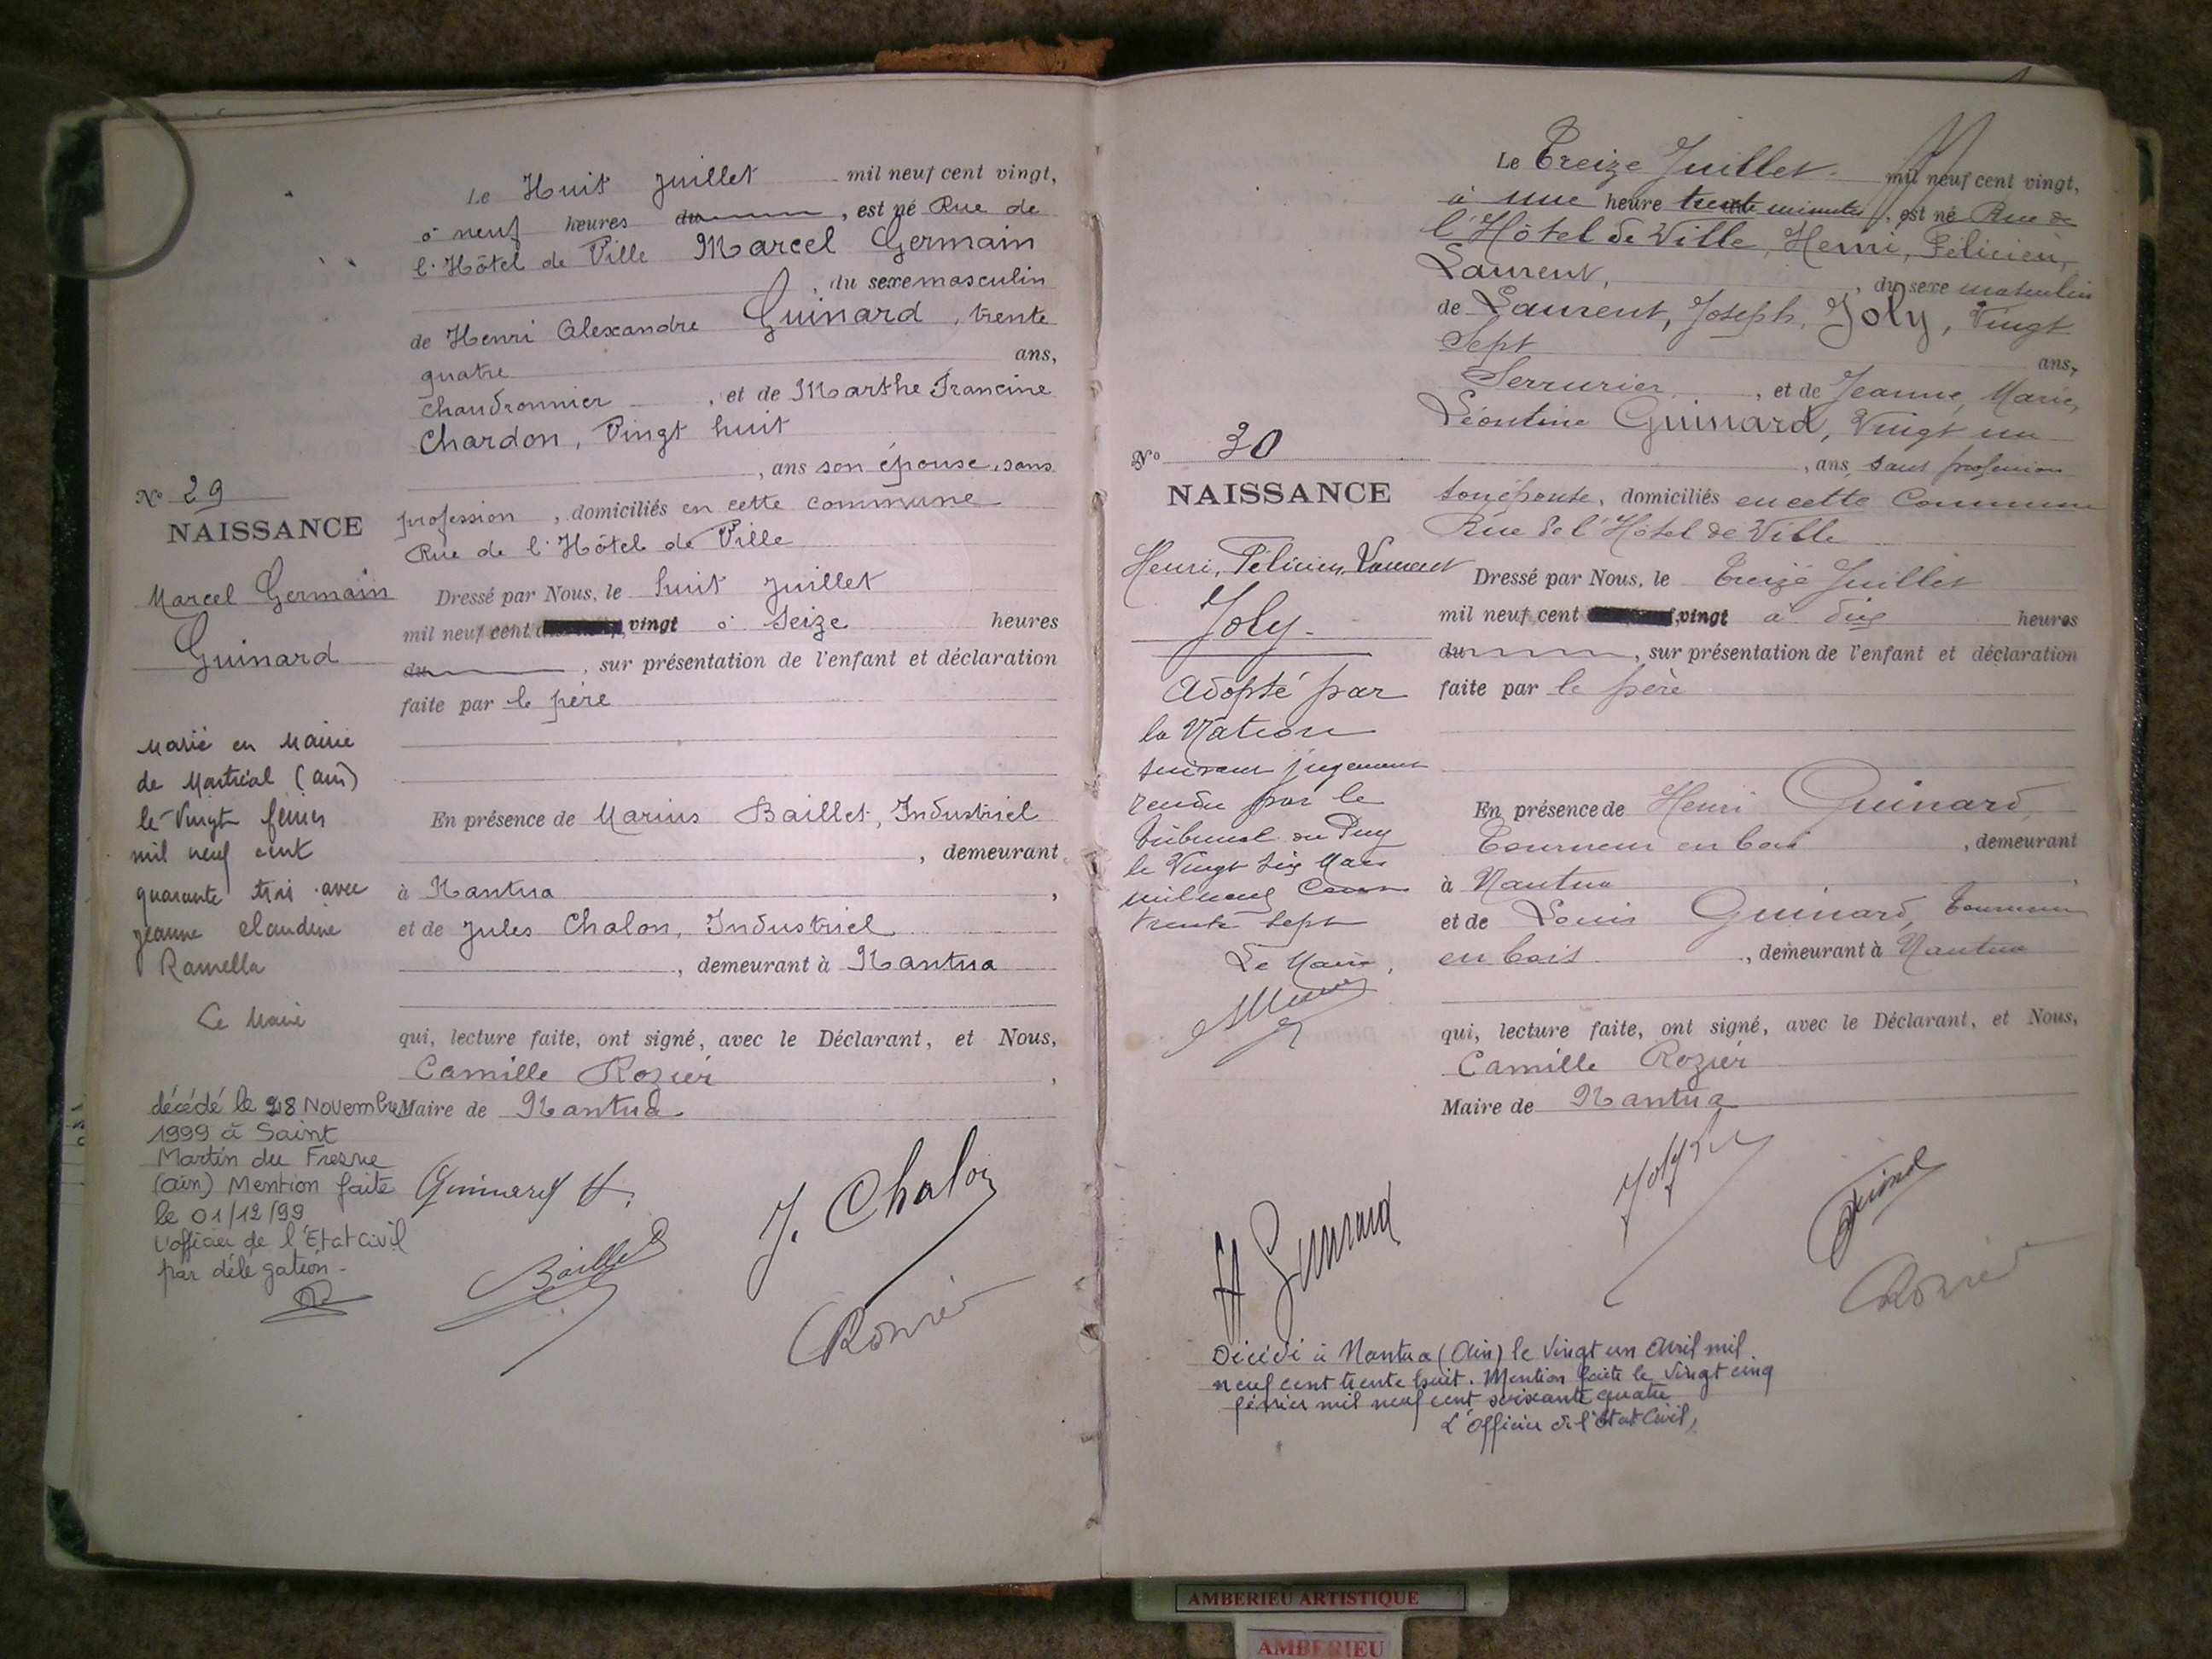 Le Huit Juillet mil neuf cent vingt,
à neuf heures du, est né Rue de
l'Hôtel de Ville Marcel Germain
, du sexe masculin
de Henri Alexandre Guinard, trente
quatre ans,
chaudronnier, et de Marthe Francine
Chardon, Vingt huit
, ans son épouse, sans
No 29
NAISSANCE
profession, domiciliés en cette commune
Rue de l'Hôtel de Ville
Marcel Germain
Guinard
Dressé par Nous, le huit Juillet
mil neuf cent vingt à Seize heures
du, sur présentation de l'enfant et déclaration
faite par le père
Marié en Mairie
de Martréal (Ain)
le Vingt février
mil neuf cent
quarante trois avec
Jeanne Claudine
Ramella
Le Maire
En présence de Marius Baillet, Industriel
, demeurant
à Nantua,
et de Jules Chalon, Industriel
, demeurant à Nantua
qui, lecture faite, ont signé, avec le Déclarant, et Nous,
Camille Rozier,
Maire de Nantua
décédé le 28 Novembre
1999 à Saint
Martin du Fresne
(Ain) Mention faite
le 01/12/99
L'officier de l'Etat Civil
par délégation -
Guinard H.
Baillet
J. Chalon
Rozier
Le Treize Juillet mil neuf cent vingt,
à une heure trente minutes, est né Rue de
l'Hôtel de Ville, Henri, Félicien,
Laurent, , du sexe masculin
de Laurent, Joseph, Joly, Vingt
Sept ans,
Serrurier, et de Jeanne, Marie,
Léontine Guinard, Vingt un
, ans, sans profession
No 30
NAISSANCE
son épouse, domiciliés en cette Commune
Rue de l'Hôtel de Ville
Henri, Félicien, Laurent
Joly
Dressé par Nous, le Treize Juillet
mil neuf cent vingt à dix heures
du, sur présentation de l'enfant et déclaration
faite par le père
Adopté par
la Nation
suivant jugement
rendu par le
tribunal du Puy
le Vingt Six Mars
mil neuf Cent
trente sept
Le Maire,
En présence de Henri Guinard,
Tourneur en bois, demeurant
à Nantua,
et de Louis Guinard, tourneur
en bois, demeurant à Nantua
qui, lecture faite, ont signé, avec le Déclarant, et Nous,
Camille Rozier
Maire de Nantua
H Guinard
Joly
Guinard
Rozier
Décédé à Nantua (Ain) le Vingt un Avril mil
neuf cent trente huit. Mention faite le Vingt cinq
février mil neuf cent soixante quatre
L'Officier de l'Etat Civil,
AMBERIEU ARTISTIQUE
AMBERIEU